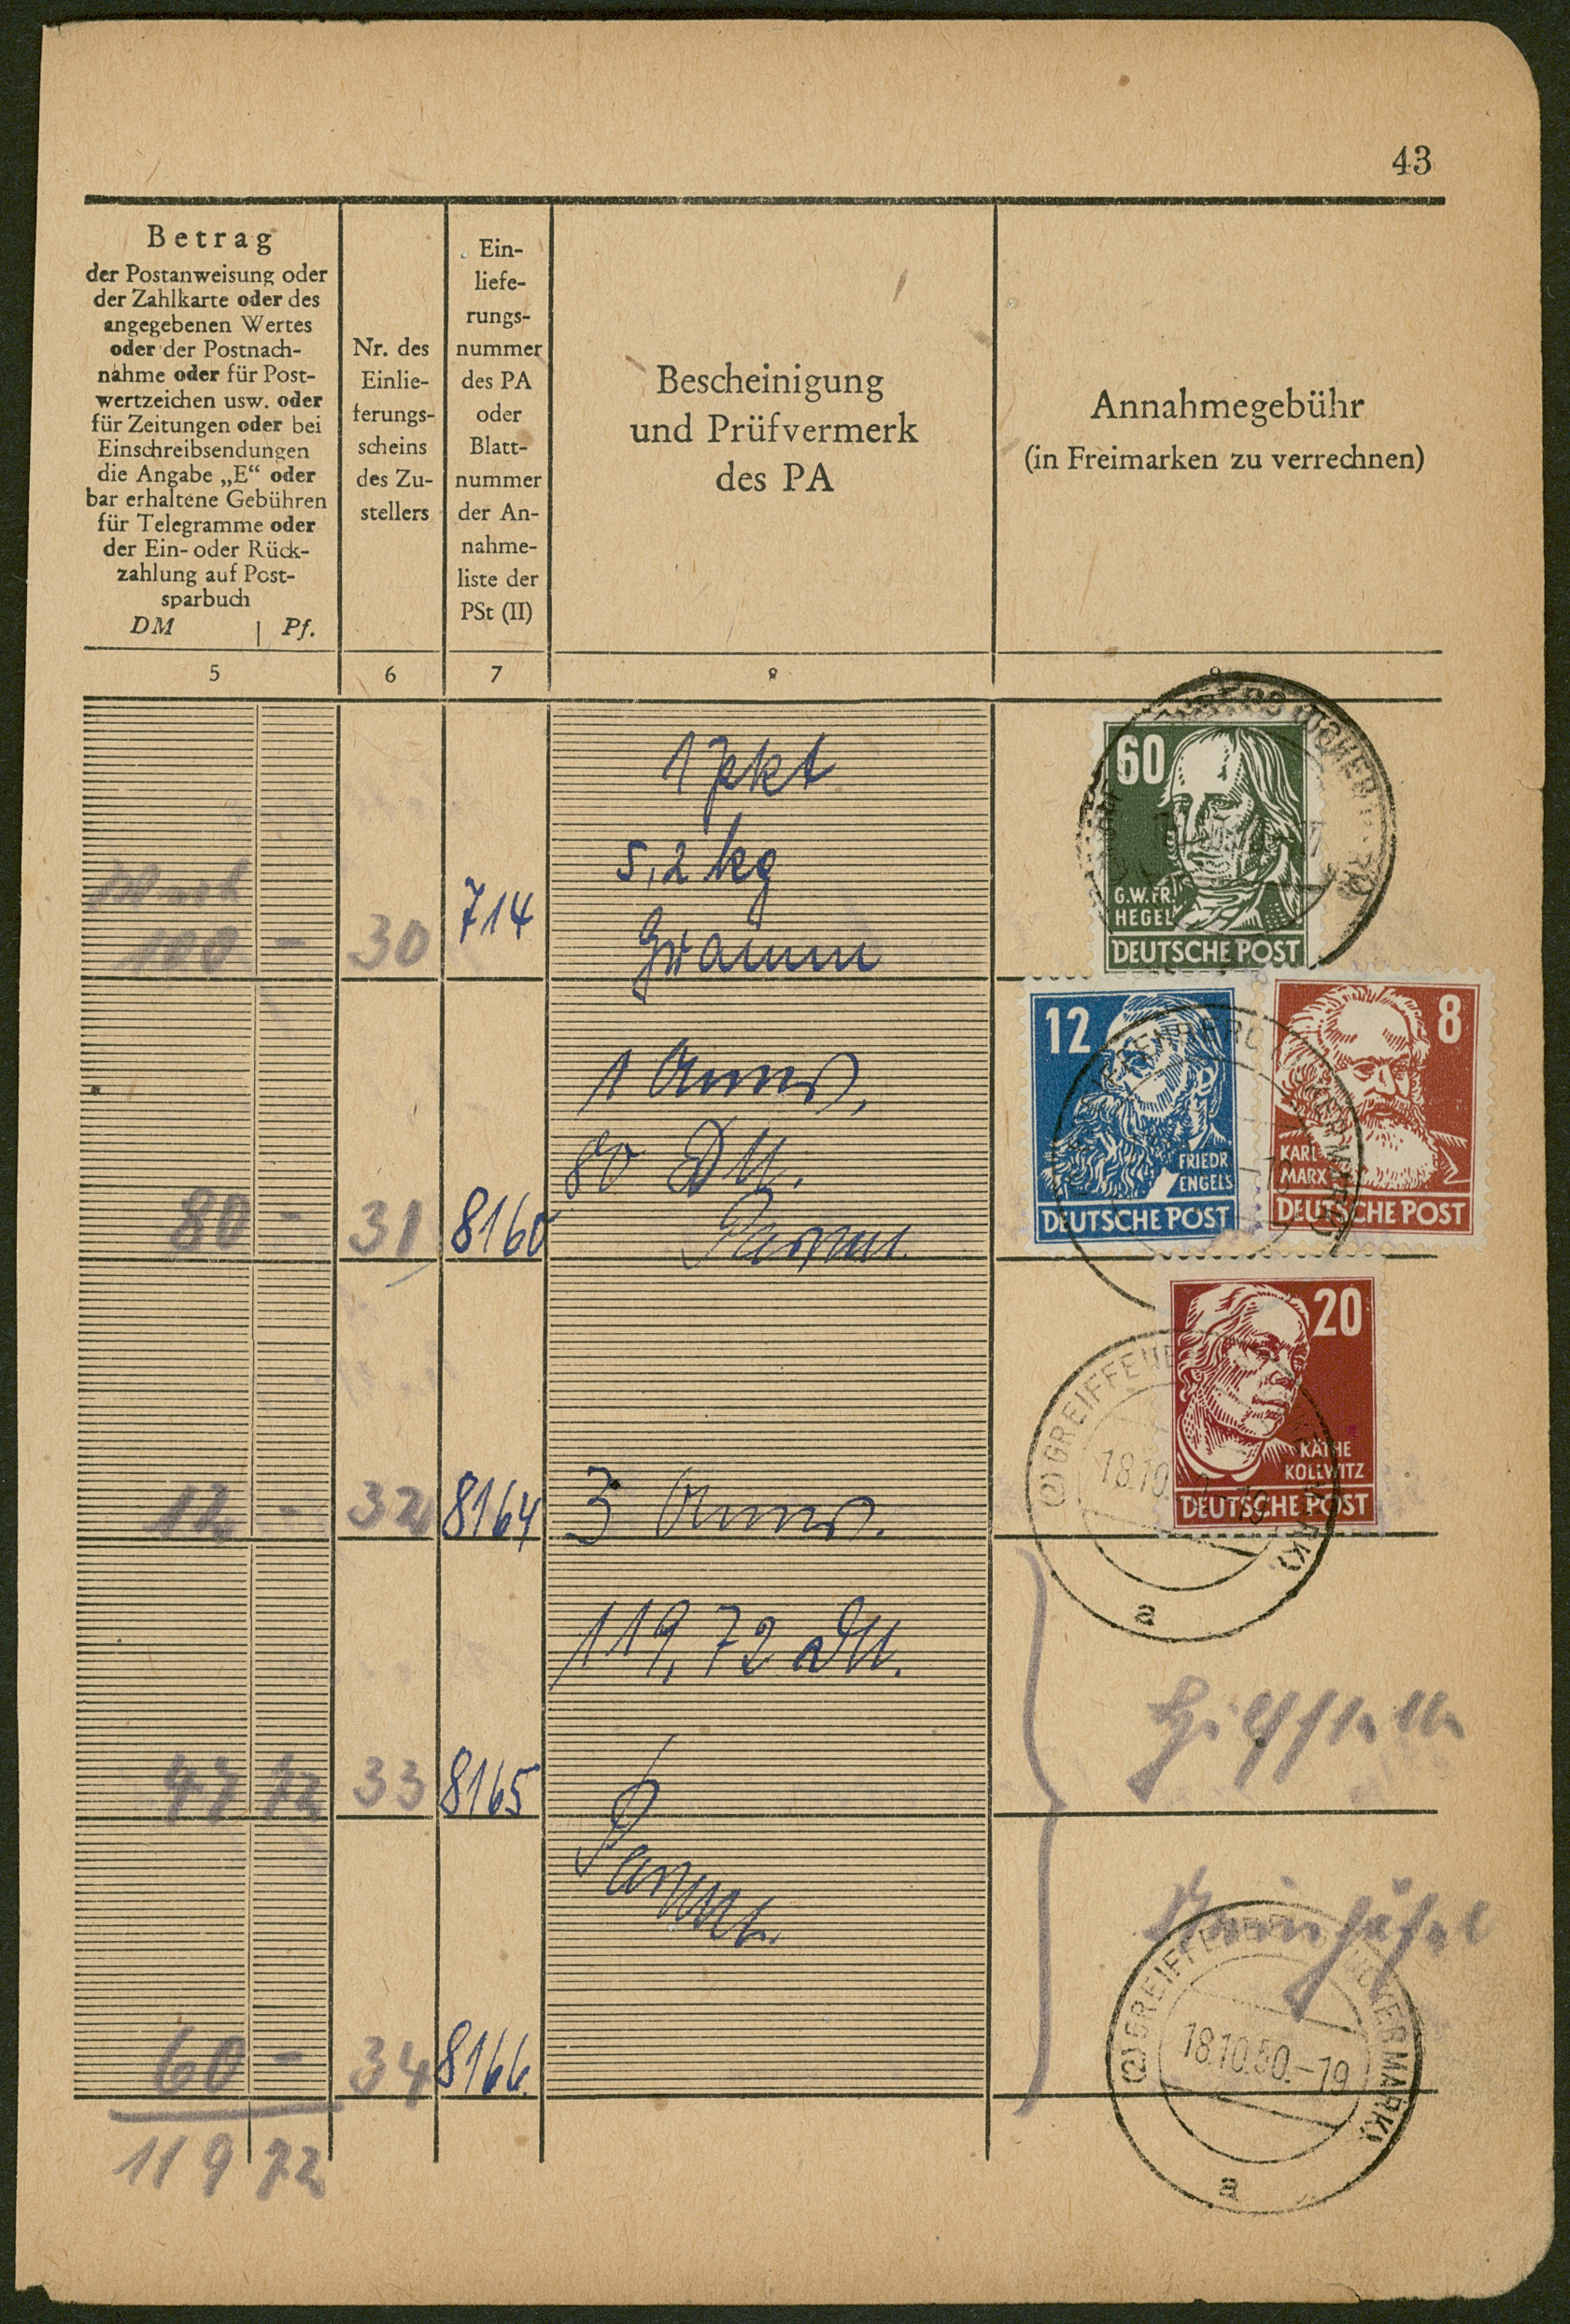 43
Betrag
der Postanweisung oder
der Zahlkarte oder des
angegebenen Wertes
oder der Postnach-
nahme oder für Post-
wertzeichen usw. oder
für Zeitungen oder bei
Einschreibsendungen
die Angabe „E“ oder
bar erhaltene Gebühren
für Telegramme oder
der Ein- oder Rück-
zahlung auf Post-
sparbuch
DM | Pf.
Nr. des
Einlie-
ferungs-
scheins
des Zu-
stellers
Ein-
liefe-
rungs-
nummer
des PA
oder
Blatt-
nummer
der An-
nahme-
liste der
PSt (II)
Bescheinigung
und Prüfvermerk
des PA
Annahmegebühr
(in Freimarken zu verrechnen)
5 6 7 8 9
100 - 30 714
1 Pkt
5,2 kg
60
G.W.FR.
HEGEL
DEUTSCHE POST
80 - 31 8160
1 Anws.
80 DM.
12
FRIEDR
ENGELS
DEUTSCHE POST
8
KARL
MARX
DEUTSCHE POST
12 - 32 8164 3 Anws.
20
KÄTHE
KOLLWITZ
DEUTSCHE POST
(2) GREIFFENB
18.10
19
a
47 72 33 8165
119,72 DM.
60 - 34 8166
119 72
(2) GREIFFENBERG (UCKERMARK)
18.10.50.-19
a